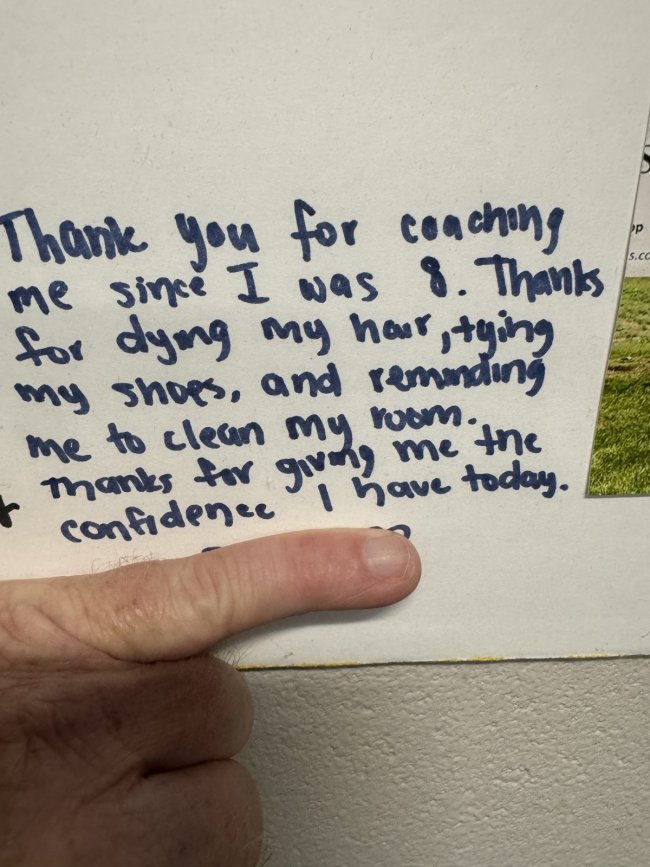 Thank you for coaching
me since I was 8. Thanks
for dying my hair, tying
my shoes, and reminding
me to clean my room.
Thanks for giving me the
confidence I have today.